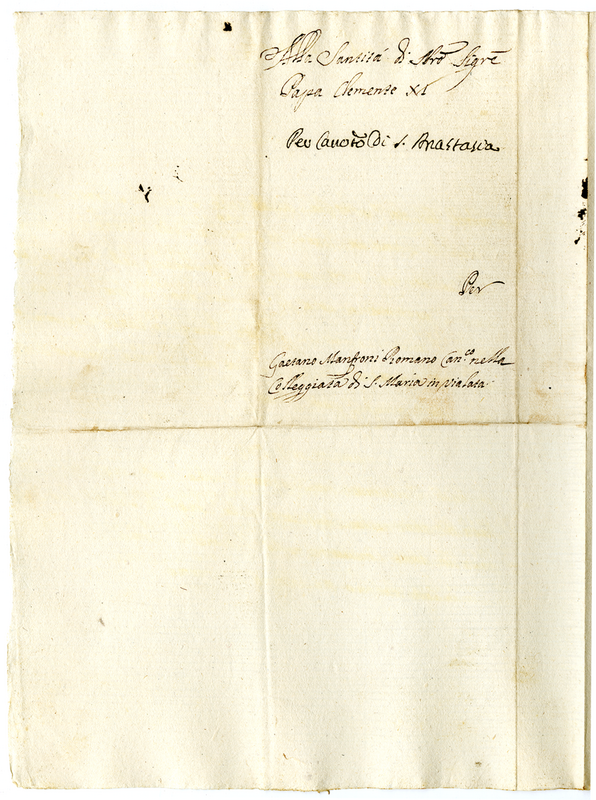 Alla Santità di Nro Sigre
Papa Clemente XI
Per Canoto di S. Anastasia
Per
Gaetano Manfroni Romano Can.co nella
Colleggiata di S. Maria in vialata